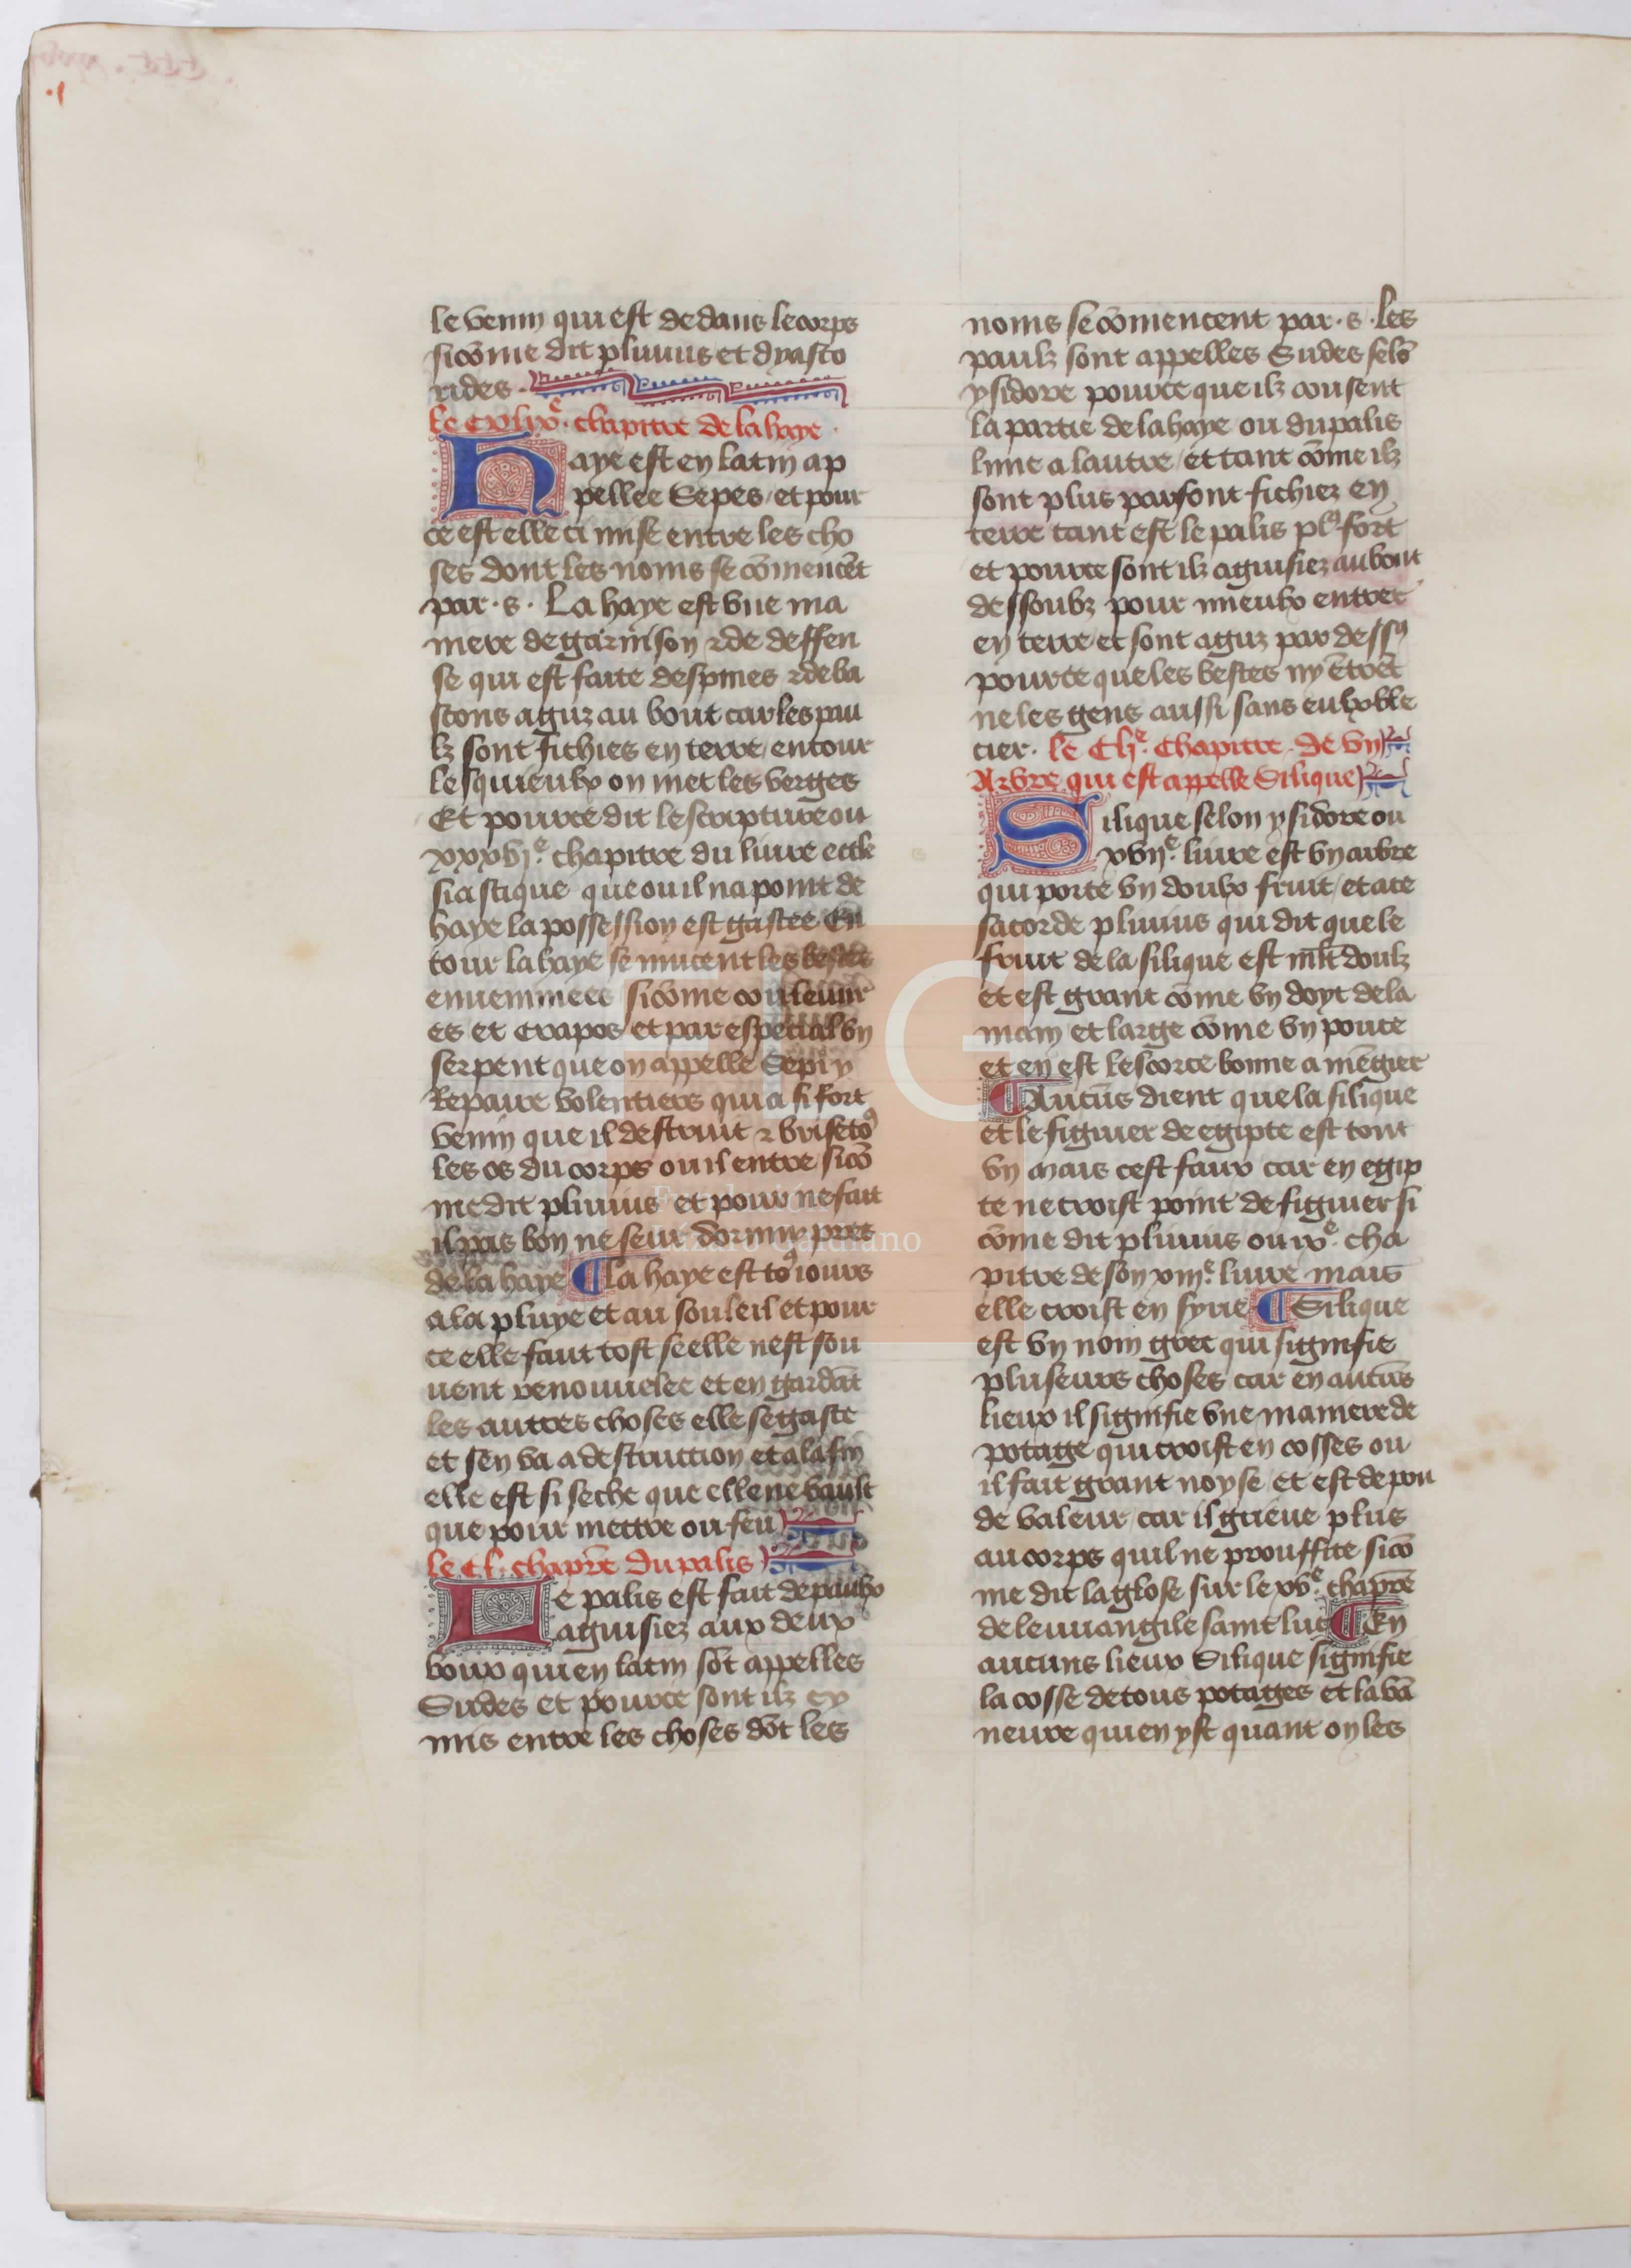 le venin qui est dedans le corps
sicõme dit plinius et dyasco
rides.
le Cxlixe. chapitre de la haye.
Haye est en latin ap
pellee Sepes / et pour
ce est elle ci mise entre les cho
ses dont les noms se cõmencẽt
par .s. La haye est vne ma
niere de garnison ⁊ de deffen
se qui est faite despines ⁊ de ba
stons aguz au bout car les pau
lz sont fichies en terre / entour
lesquieulx on met les verges
Et pource dit lescripture ou
xxxvje. chapitre du liure eccle
siastique que ou il na point de
haye la possession est gastee En
tour la haye se mucent les bestes
enuenimees sicõme couleuur
es et crapos / et par especial vn
serpent que on appelle Sepin
Repaire volentiers qui a si fort
venin que il destruit ⁊ brise toꝰ
les os du corps ou il entre sicõ
me dit plinius et pour ne fait
il pas bon ne seur dormir pres
de la haye ¶ La haye est toꝰiours
a la pluye et au souleil et pour
ce elle faut tost se elle nest sou
uent renouuelee et en gardãt
les autres choses elle se gaste
et sen va a destruction et a la fin
elle est si seche que elle ne vault
que pour mettre ou feu
le Cl. chapr̃e du palis
Le palis est fait de paulx
aguisiez aux deux
boux qui en latin sõt appelles
Sudes et pource sont ilz cy
mis entre les choses dõt les
noms se cõmencent par .s. les
paulz sont appelles Sudes selõ
ysidore pource que ilz cousent
la partie de la haye ou du palis
lune a lautre / et tant cõme ilz
sont plus parfont fichiez en
terre tant est le palis plꝰ fort
et pource sont ilz aguisiez au bout
dessoubz pour mieulx entrer
en terre / et sont aguz par dessꝰ
pource que les bestes ny ẽtrẽt
ne les gens aussi sans eulx ble
cier. le Clje. Chapitre. de vn
Arbre qui est appelle Silique
Silique selon ysidore ou
xvije. liure est vn arbre
qui porte vn doulx fruit / et a ce
sacorde plinius qui dit que le
fruit de la silique est mlt̃ doulz
et est grant cõme vn doyt de la
main et large cõme vn pouce
et en est lescorce bonne a mẽgier
¶ Aucũs dient que la silique
et le figuier de egipte est tout
vn mais cest faux car en egip
te ne croist point de figuier si
cõme dit plinius ou ixe. cha
pitre de son xiije. liure mais
elle croist en syrie ¶ Silique
est vn nom grec qui signifie
pluseurs choses car en aucũs
lieux il signifie vne maniere de
potage qui croist en cosses ou
il fait grant noyse / et est de pou
de valeur / car il grieue plus
au corps quil ne prouffite sicõ
me dit la glose sur le xve. chapr̃e
de leuuangile saint luc ¶ En
aucuns lieux Silique signifie
la cosse de tous potages et la vã
neure qui en yst quant on les
Lázaro Galdiano